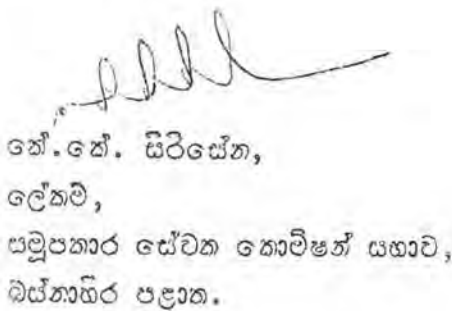 කේ.කේ. සිරිසේන,
ලේකම්,
සමූපකාර සේවක කොමිෂන් සභාව,
බස්නාහිර පළාත.